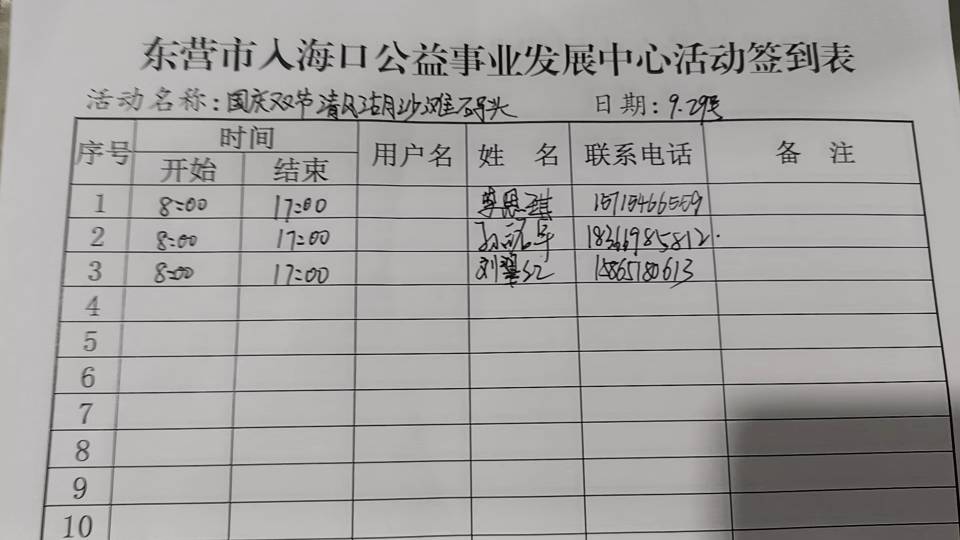 东营市入海口公益事业发展中心活动签到表
活动名称：国庆双节清风湖沙滩码头 日期：9.29号
序号 时间 用户名 姓 名 联系电话 备 注
开始 结束
1 8:00 17:00 李思琪 15715466559
2 8:00 17:00 孙 18366985812.
3 8:00 17:00 刘翠红 15865180613
4
5
6
7
8
9
10